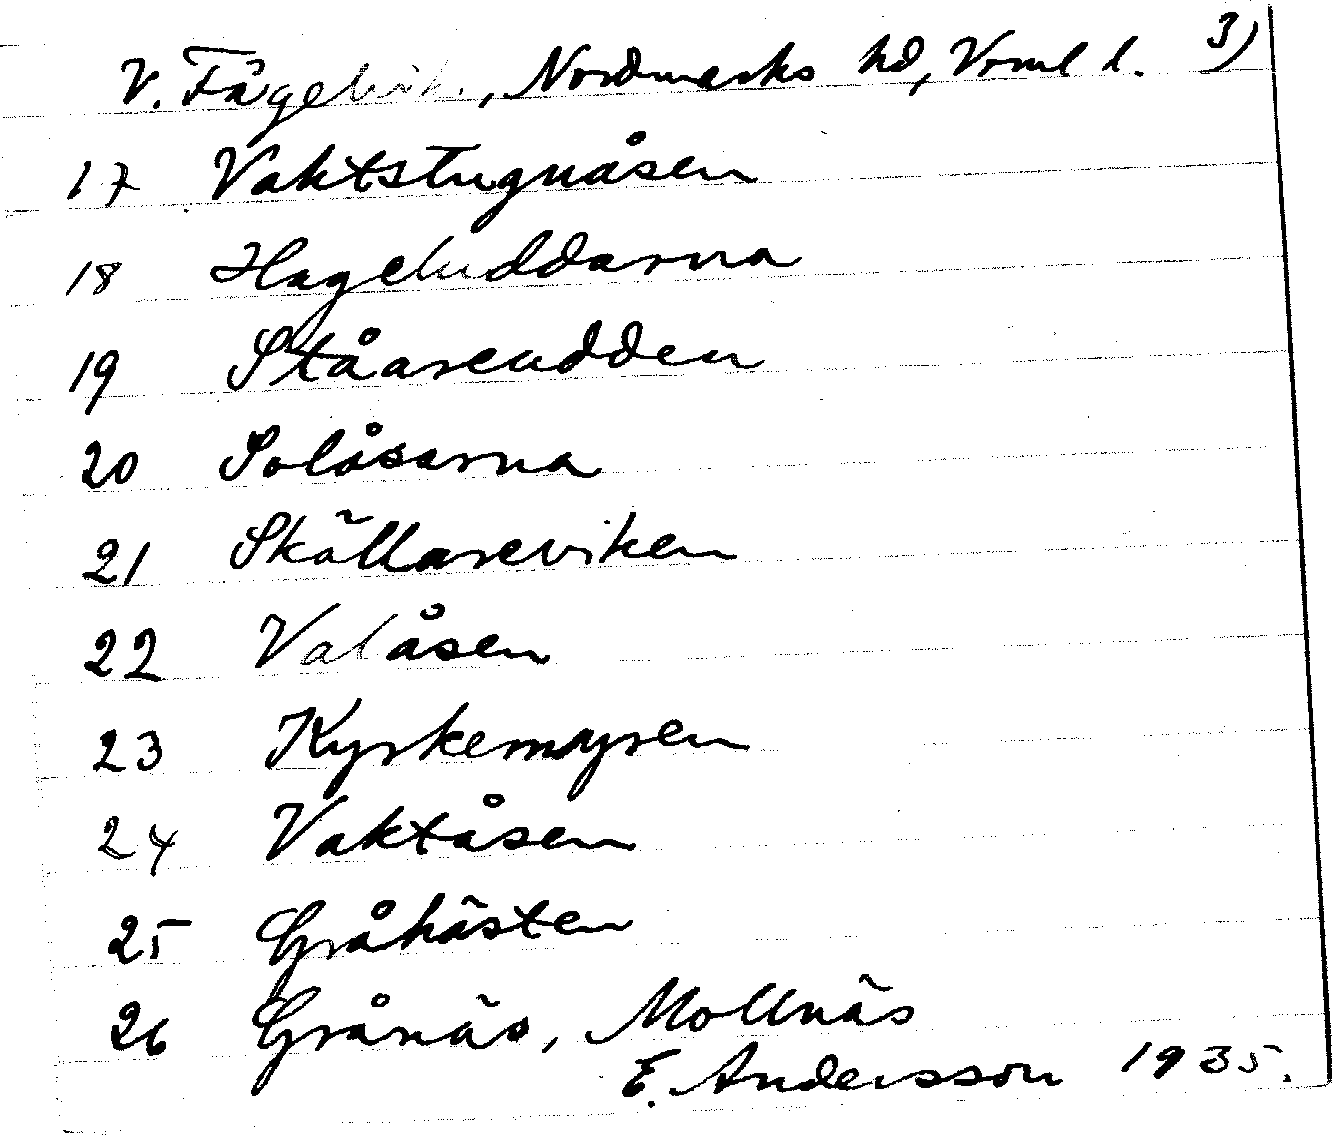 V. Fågelvik, Nordmarks hd, Vrml l. 3)
17 Vaktstugnåsen
18 Hageluddarna
19 Ståareudden
20 Solåsarna
21 Skållareviken
22 Valåsen
23 Kyrkemyren
24 Vaktåsen
25 Gråhästen
26 Grånäs, Mollnäs
E. Andersson 1935.